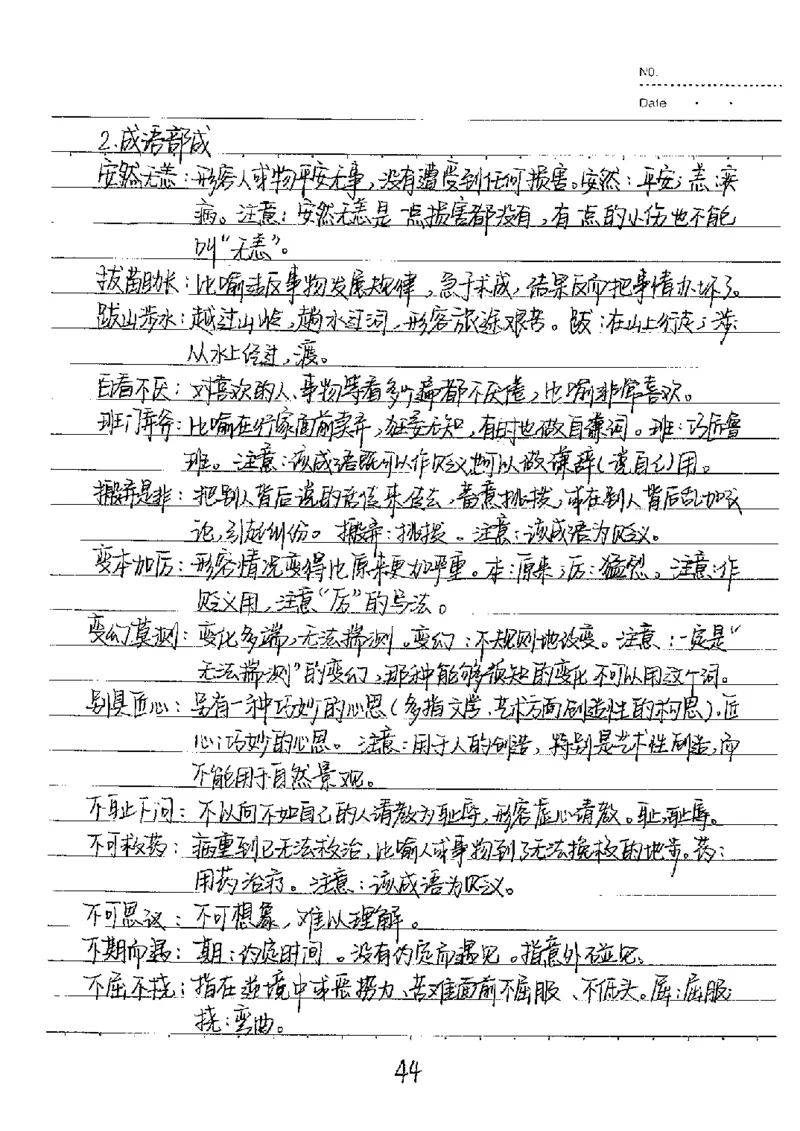 NO.
Date
2.成语部成
安然无恙:形容人或物平安无事,没有遭受到任何损害。安然:平安;恙:疾
病。注意:安然无恙是 点损害都没有,有 点的小伤也不能
叫“无恙”。
拔苗助长:比喻违反事物发展规律,急于求成,结果反而把事情办坏了。
跋山涉水:越过山岭,趟水过河,形容旅途艰苦。跋:在山上行走;涉:
从水上经过,渡。
百看不厌:对喜欢的人、事物等看多少遍都不厌倦,比喻非常喜欢。
班门弄斧:比喻在行家面前卖弄,狂妄无知,有时也做自谦词。班:巧匠鲁
班。注意:该成语既可以作贬义也可以做谦辞(说自己)用。
搬弄是非:把别人背后说的话传来传去,蓄意挑拨,或在别人背后乱加议
论,引起纠纷。搬弄:挑拨。注意:该成语为贬义。
变本加厉:形容情况变得比原来更加严重。本:原来;厉:猛烈。注意:作
贬义用,注意“厉”的写法。
变幻莫测:变化多端,无法揣测。变幻:不规则地改变。注意:一定是“
无法揣测”的变幻,那种能够预知的变化不可以用这个词。
别具匠心:另有一种巧妙的心思(多指文学、艺术方面创造性的构思)。匠
心:巧妙的心思。注意:用于人的创造,特别是艺术性创造,而
不能用于自然景观。
不耻下问:不以向不如自己的人请教为耻辱,形容虚心请教。耻:耻辱。
不可救药:病重到已无法救治,比喻人或事物到了无法挽救的地步。药:
用药治疗。注意:该成语为贬义。
不可思议:不可想象,难以理解。
不期而遇:期:约定时间。没有约定而遇见。指意外碰见。
不屈不挠:指在逆境中或恶势力、苦难面前不屈服、不低头。屈:屈服;
挠:弯曲。
44